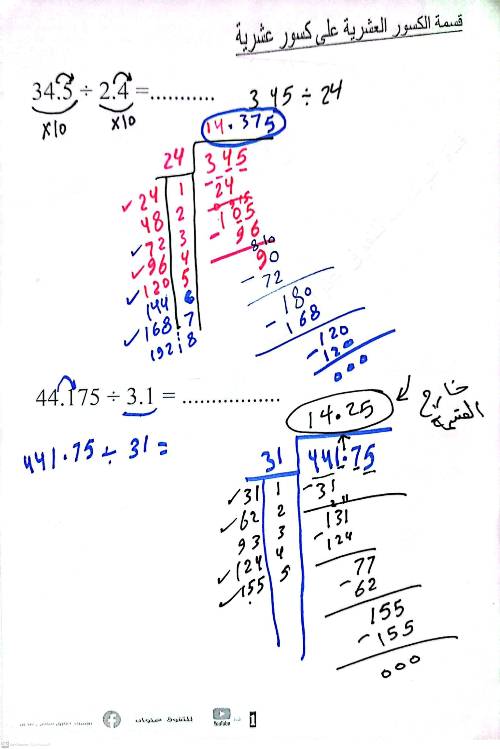 قسمة الكسور العشرية على كسور عشرية
34.5 ÷ 2.4 =.......... 345 ÷ 24
x10 x10
14.375
24 345
24 1 - 24
48 2 105
72 3 - 96
96 4 90
120 5 - 72
144 6 180
168 7 - 168
192 8 - 120
120
000
44.175 ÷ 3.1 = ..................
خارج القسمة
14.25
441.75 ÷ 31 =
31 441.75
31 1 - 31
62 2 131
93 3 - 124
124 4 77
155 5 - 62
155
- 155
000
للتفوق عنوان
YouTube
1